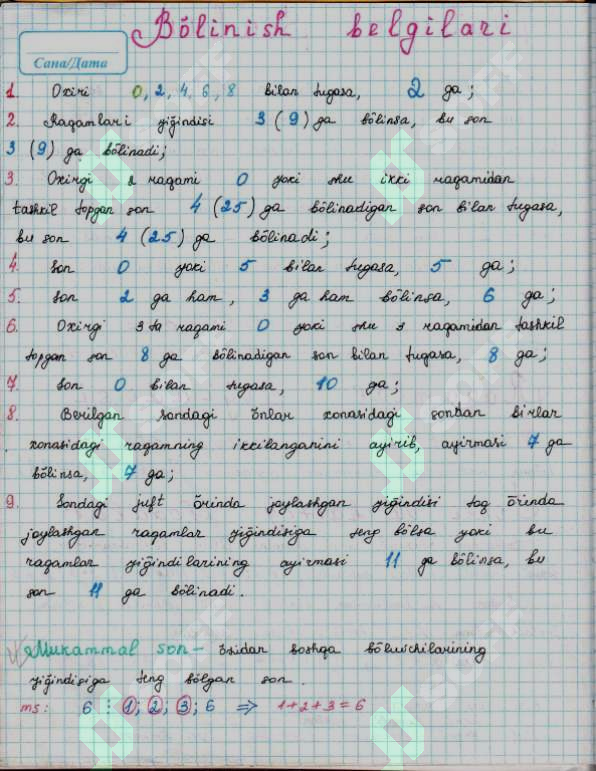 Bõlinish belgilari
Сана/Дата
1. Oxiri 0, 2, 4, 6, 8 bilan tugasa, 2 ga;
2. Raqamlari yiğindisi 3 (9) ga bõlinsa, bu son
3 (9) ga bõlinadi;
3. Oxirgi 2 raqami 0 yoki shu ikki raqamidan
tashkil topgan son 4 (25) ga bõlinadigan son bilan tugasa,
bu son 4 (25) ga bõlinadi;
4. Son 0 yoki 5 bilan tugasa, 5 ga;
5. Son 2 ga ham, 3 ga ham bõlinsa, 6 ga;
6. Oxirgi 3 ta raqami 0 yoki shu 3 raqamidan tashkil
topgan son 8 ga bõlinadigan son bilan tugasa, 8 ga;
7. Son 0 bilan tugasa, 10 ga;
8. Berilgan sondagi õnlar xonasidagi sondan birlar
xonasidagi raqamning ikkilanganini ayirib, ayirmasi 7 ga
bõlinsa, 7 ga;
9. Sondagi juft õrinda joylashgan yiğindisi toq õrinda
joylashgan raqamlar yiğindisiga teng bõlsa yoki bu
raqamlar yiğindilarining ayirmasi 11 ga bõlinsa, bu
son 11 ga bõlinadi.
Mukammal son - õzidan boshqa bõluvchilarining
yiğindisiga teng bõlgan son.
ms: 6 : 1; 2; 3; 6 ⇒ 1+2+3=6